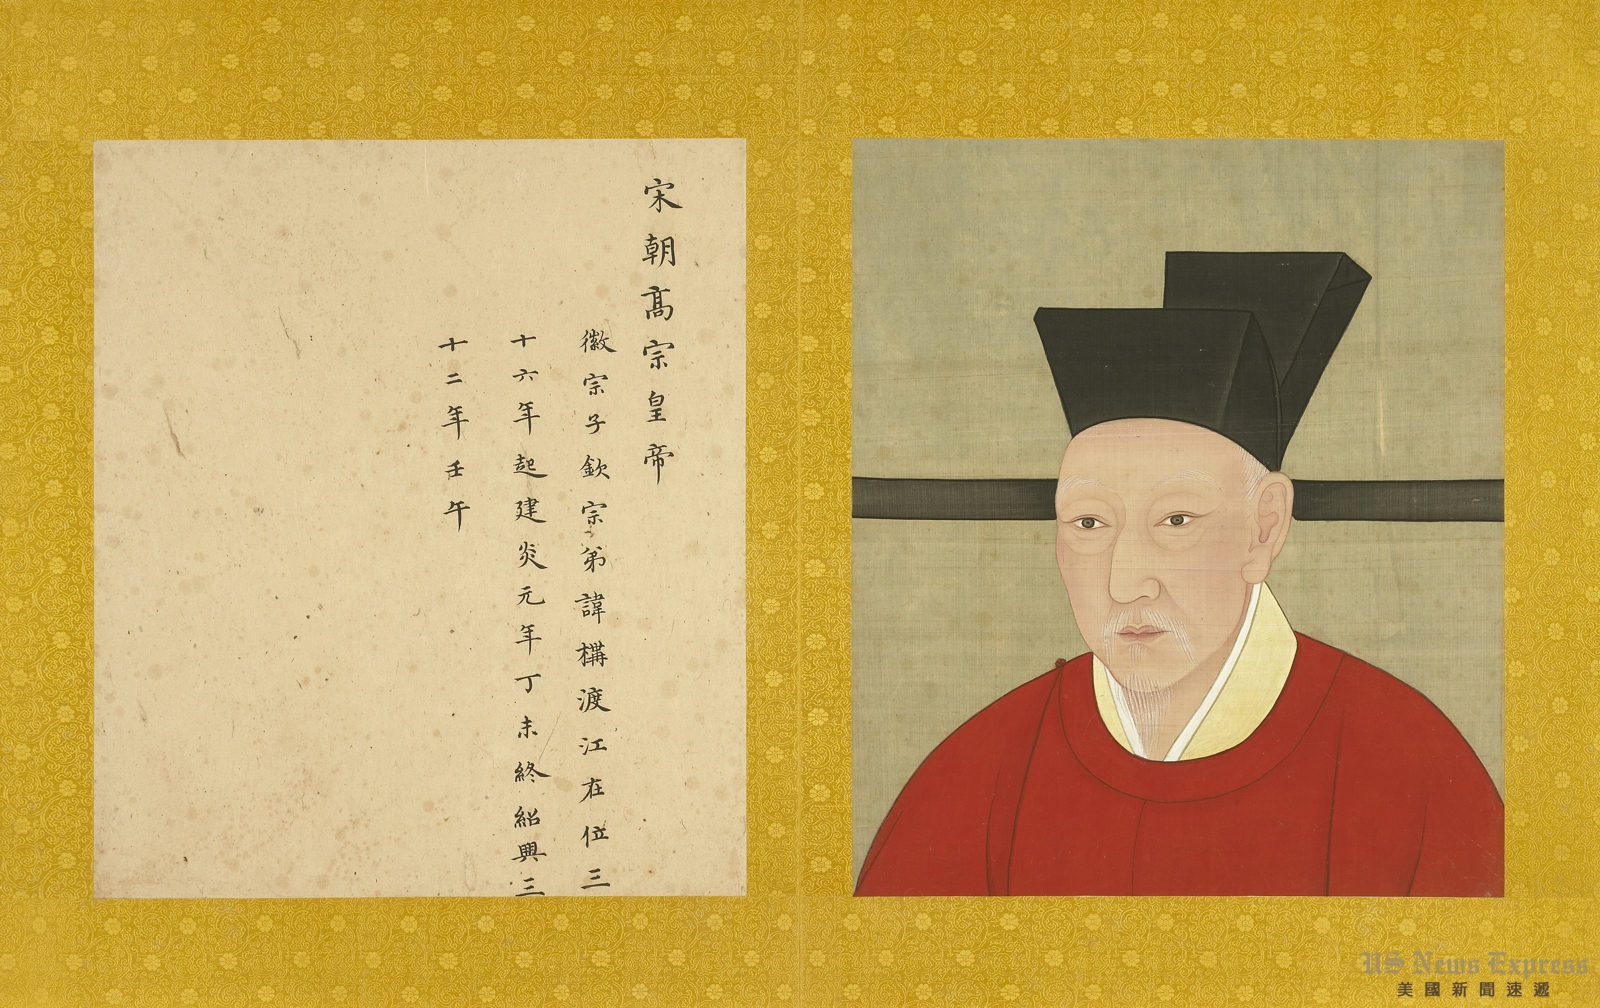 宋朝髙宗皇帝
徽宗子欽宗弟諱構渡江在位三
十六年起建炎元年丁未終紹興三
十二年壬午
US News Express
美國新聞速遞